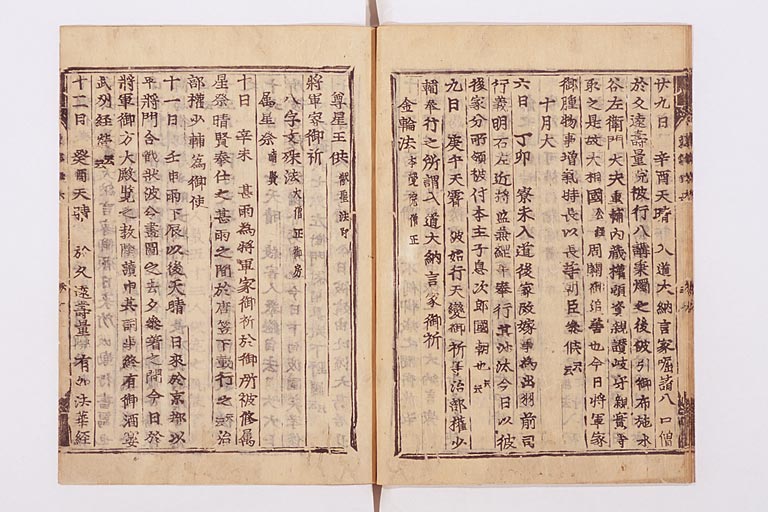 廿九日 辛酉天晴 入道大納言家 八口僧
於久遠壽量院被行八講秉燭之後被引御布施水
谷左衛門大夫重輔内蔵權頭資親讃岐守親實等
取之是故大相國公經周闋御追善也今日將軍家
御腫物事増氣
十月大
六日 丁卯 寮米入道後家改嫁事為出羽前司
行義明石左近將監兼綱等奉行其沙汰今日以彼
後家分所領被付本主子息次郎國朝也云々
九日 庚午天霽 被始行天變御祈等治部權少
輔奉行之所謂入道大納言家御祈
金輪法 僧正
尊星王供 法印
將軍家御祈
八字文殊法 大僧正御房
属星祭 晴賢
十日 辛未 甚雨為將軍家御祈於御所被修属
星祭晴賢奉仕之甚雨之間於唐笠下勤行之云々治
部權少輔為御使
十一日 壬申雨下辰以後天晴 其日來於京都以
平將門合戰狀被令畫圖之去夕參著之間今日於
將軍御方大殿覧之教隆讀申其詞事終有御酒宴
武州經營云々
十二日 癸酉天晴 於久遠壽量院有如法華經